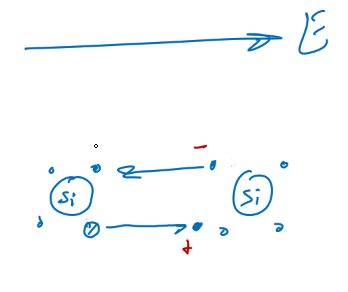 E
−
Si Si
+